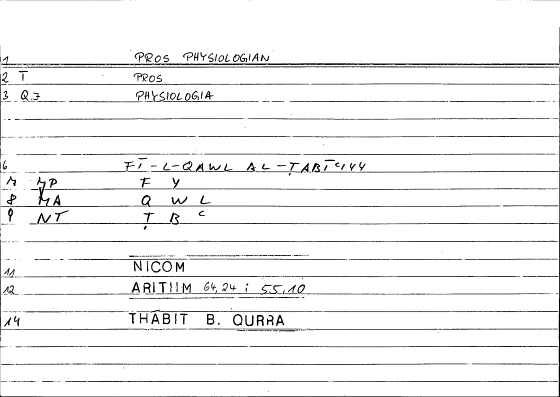 1 PROS PHYSIOLOGIAN
2 T̅ PROS
3 Q.J PHYSIOLOGIA
6 FĪ-L-QAWL AL-ṬABĪʿIYY
7 MP F Y
8 MA Q W L
9 NT Ṭ B ʿ
11 NICOM
12 ARITHM 64,24 : 55.10
14 THĀBIT B. QURRA